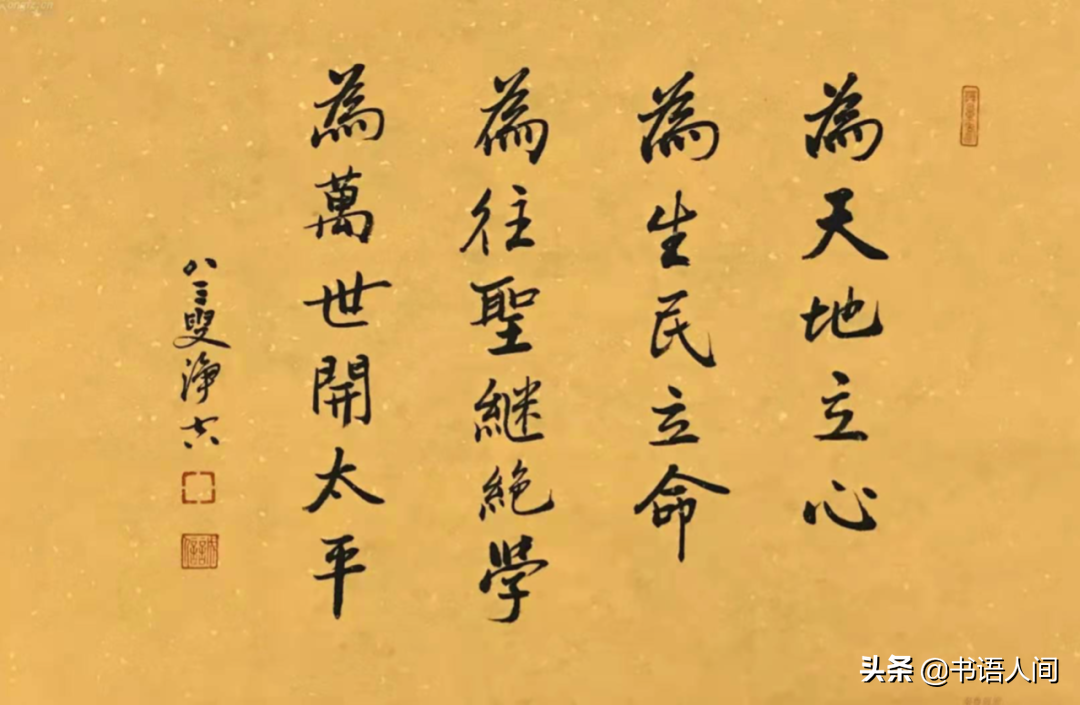 為天地立心
為生民立命
為往聖継絶學
為萬世開太平
八三叟淨空
头条 @书语人间